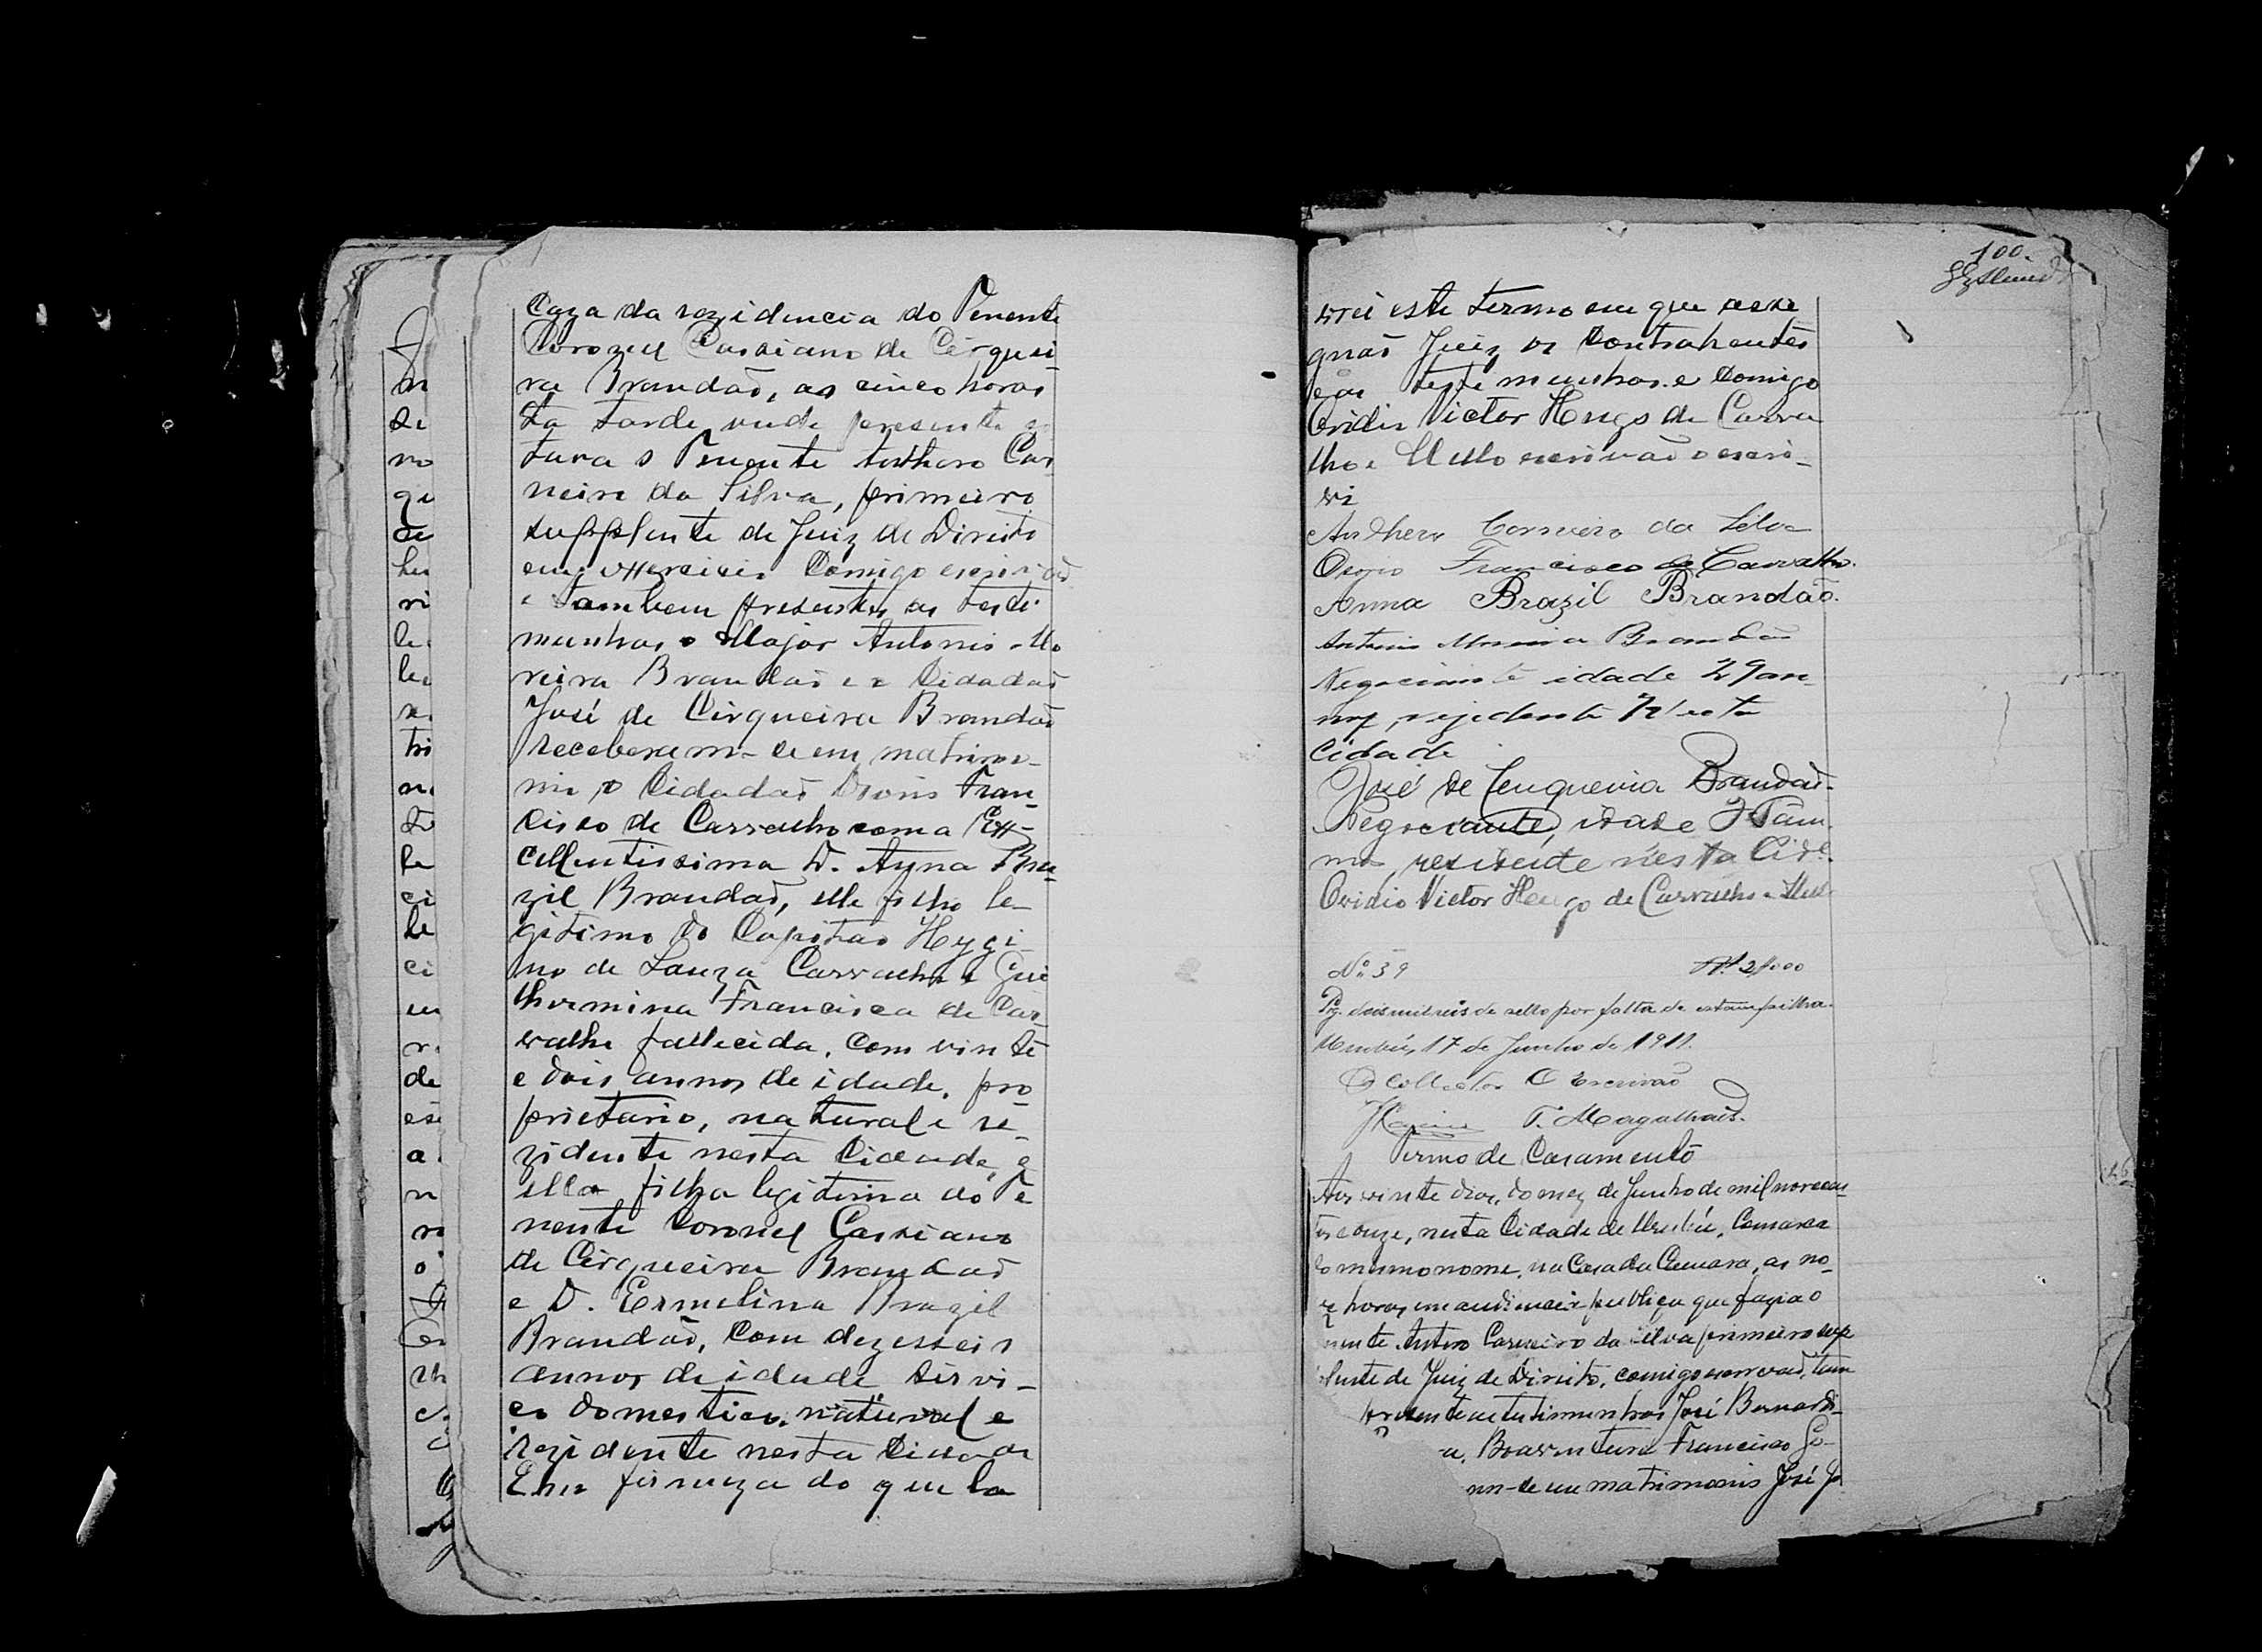 Caza da rezidencia do Tenente
Coronel Cassiano de Cerquei-
ra Brandaõ, as cinco horas
da tarde, onde presente
o Tenente Anthero Car
neiro da Silva, primeiro
supplente de Juiz de Direito
em exercicio Comigo escrivaõ
e tambem presentes as teste
munhas o Major Antonio Mo
reira Brandaõ e o Cidadaõ
José de Cirqueira Brandaõ
receberam-se em matrimo-
nio o Cidadaõ Ozorio Fran-
cisco de Carvalho com a Ex-
cellentissima D. Anna Bra-
zil Brandaõ, elle filho le-
gitimo do Capitaõ Hygi-
no de Souza Carvalho e Gui
lhermina Francisca de Car-
valho fallecida, com vinte
e dois annos de idade, pro
prietario, natural e re-
zidente nesta Cidade, e
ella filha legitima do Te
nente Coronel Cassiano
de Cirqueira Brandaõ
e D. Ermelina Brazil
Brandaõ, com dezesseis
annos de idade servi-
co domestico, natural e
rezidente nesta Cidade
Em firmeza do que la
100.
vrei este termo em que assi
gnaõ Juiz os Contrahentes
e as testemunhas e Comigo
Ovidio Victor Hugo de Carva
lho e Mello escrivaõ o escre-
vi
Anthero Carneiro da Silva
Ozorio Francisco de Carvalho.
Anna Brazil Brandaõ.
Antonio Moreira Brandão
Negociante idade 29 an-
nos, rezidente n'esta
Cidade
José de Cerqueira Brandaõ.
Negociante, idade
residente nesta Cide.
Ovidio Victor Hugo de Carvalho e Mello
Nº 39 Rs 2$000
Pg. dois mil reis de sello por falta de estampilha.
Urubú, 17 de Junho de 1911.
O Collector O Escrivaõ
T. Magalhães.
Termo de Casamento
Aos vinte dias do mez de Junho de mil novecen-
tos e onze, nesta Cidade de Urubú, Comarca
do mesmo nome, na Casa da Camara, as no-
ve horas, em audiencia publica que fazia o
nente Antero Carneiro da Silva primeiro sup
plente de Juiz de Direito, comigo escrivaõ, tam
presente as testimunhas José Bernardi-
Boaventura Francisco Go-
am-se em matrimonio José